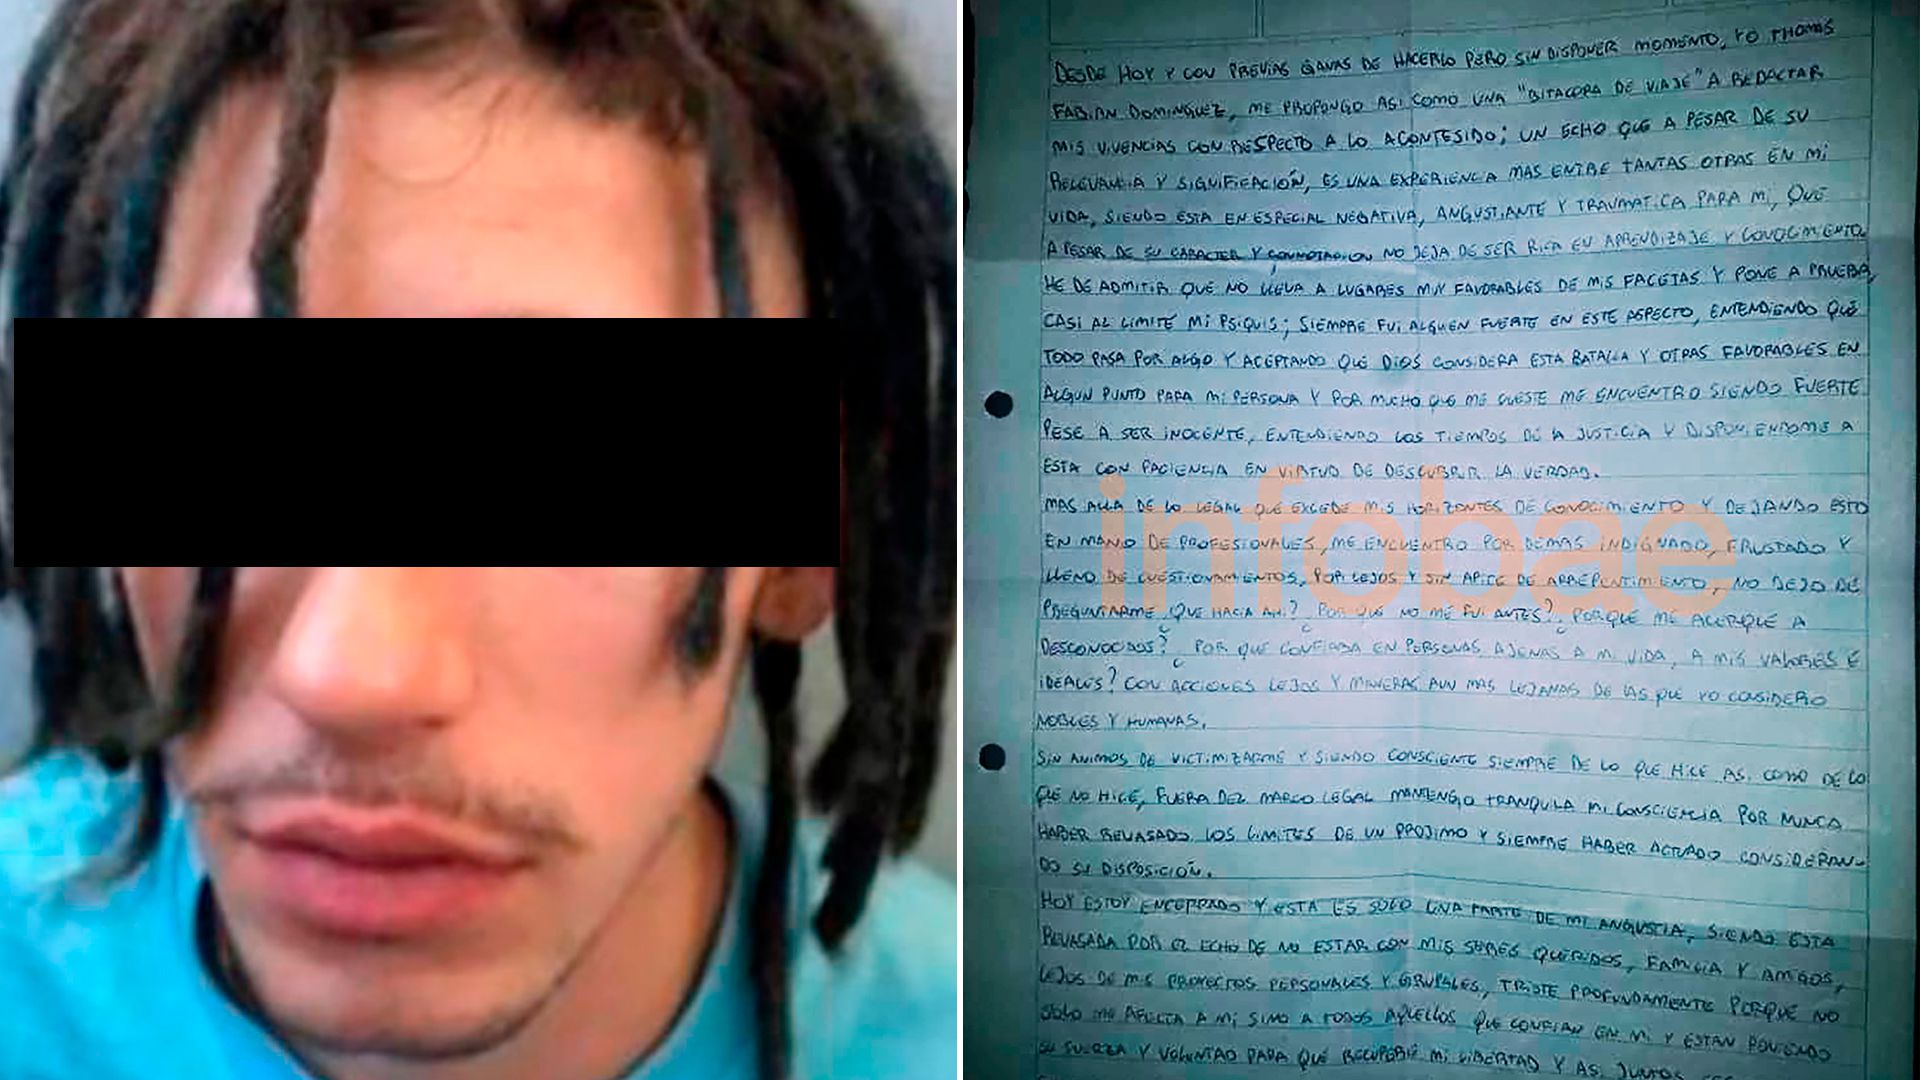 DESDE HOY Y CON PREVIAS GANAS DE HACERLO PERO SIN DISPONER MOMENTO, YO THOMAS
FABIAN DOMINGUEZ, ME PROPONGO ASI COMO UNA "BITACORA DE VIAJE" A REDACTAR
MIS VIVENCIAS CON RESPECTO A LO ACONTESIDO; UN ECHO QUE A PESAR DE SU
RELEVANCIA Y SIGNIFICACIÓN, ES UNA EXPERIENCIA MAS ENTRE TANTAS OTRAS EN MI
VIDA, SIENDO ESTA EN ESPECIAL NEGATIVA, ANGUSTIANTE Y TRAUMATICA PARA MI, QUE
A PESAR DE SU CARACTER Y CONNOTACION NO DEJA DE SER RICA EN APRENDIZAJE Y CONOCIMIENTO
HE DE ADMITIR QUE NO LLEVA A LUGARES MUY FAVORABLES DE MIS FACETAS Y PONE A PRUEBA,
CASI AL LIMITE MI PSIQUIS; SIEMPRE FUI ALGUIEN FUERTE EN ESTE ASPECTO, ENTENDIENDO QUE
TODO PASA POR ALGO Y ACEPTANDO QUE DIOS CONSIDERA ESTA BATALLA Y OTRAS FAVORABLES EN
ALGUN PUNTO PARA MI PERSONA Y POR MUCHO QUE ME CUESTE ME ENCUENTRO SIENDO FUERTE
PESE A SER INOCENTE, ENTENDIENDO LOS TIEMPOS DE LA JUSTICIA Y DISPONIENDOME A
ESTA CON PACIENCIA EN VIRTUD DE DESCUBRIR LA VERDAD.
MAS ALLA DE LO LEGAL QUE EXCEDE MIS HORIZONTES DE CONOCIMIENTO Y DEJANDO ESTO
EN MANO DE PROFESIONALES, ME ENCUENTRO POR DEMAS INDIGNADO, FRUSTADO Y
LLENO DE CUESTIONAMIENTOS, POR LEJOS Y SIN APICE DE ARREPENTIMIENTO, NO DEJO DE
PREGUNTARME, QUE HACIA AHI? ¿POR QUE NO ME FUI ANTES? ¿PORQUE ME ACERQUE A
DESCONOCIDOS? ¿POR QUE CONFIABA EN PERSONAS AJENAS A MI VIDA, A MIS VALORES E
IDEALES? CON ACCIONES LEJOS Y MANERAS AUN MAS LEJANAS DE LAS QUE YO CONSIDERO
NOBLES Y HUMANAS.
SIN ANIMOS DE VICTIMIZARME Y SIENDO CONSCIENTE SIEMPRE DE LO QUE HICE ASI COMO DE LO
QUE NO HICE, FUERA DEL MARCO LEGAL MANTENGO TRANQUILA MI CONSCIENCIA POR NUNCA
HABER REVASADO LOS LIMITES DE UN PROJIMO Y SIEMPRE HABER ACTUADO CONSIDERAN-
DO SU DISPOSICIÓN.
HOY ESTOY ENCERRADO Y ESTA ES SOLO UNA PARTE DE MI ANGUSTIA, SIENDO ESTA
REVASADA POR EL ECHO DE NO ESTAR CON MIS SERES QUERIDOS, FAMILIA Y AMIGOS,
LEJOS DE MIS PROYECTOS PERSONALES Y GRUPALES, TRISTE PROFUNDAMENTE PORQUE NO
SOLO ME AFECTA A MI SINO A TODOS AQUELLOS QUE CONFIAN EN MI Y ESTAN PONIENDO
SU FUERZA Y VOLUNTAD PARA QUE RECUPERE MI LIBERTAD Y ASI JUNTOS
infobae